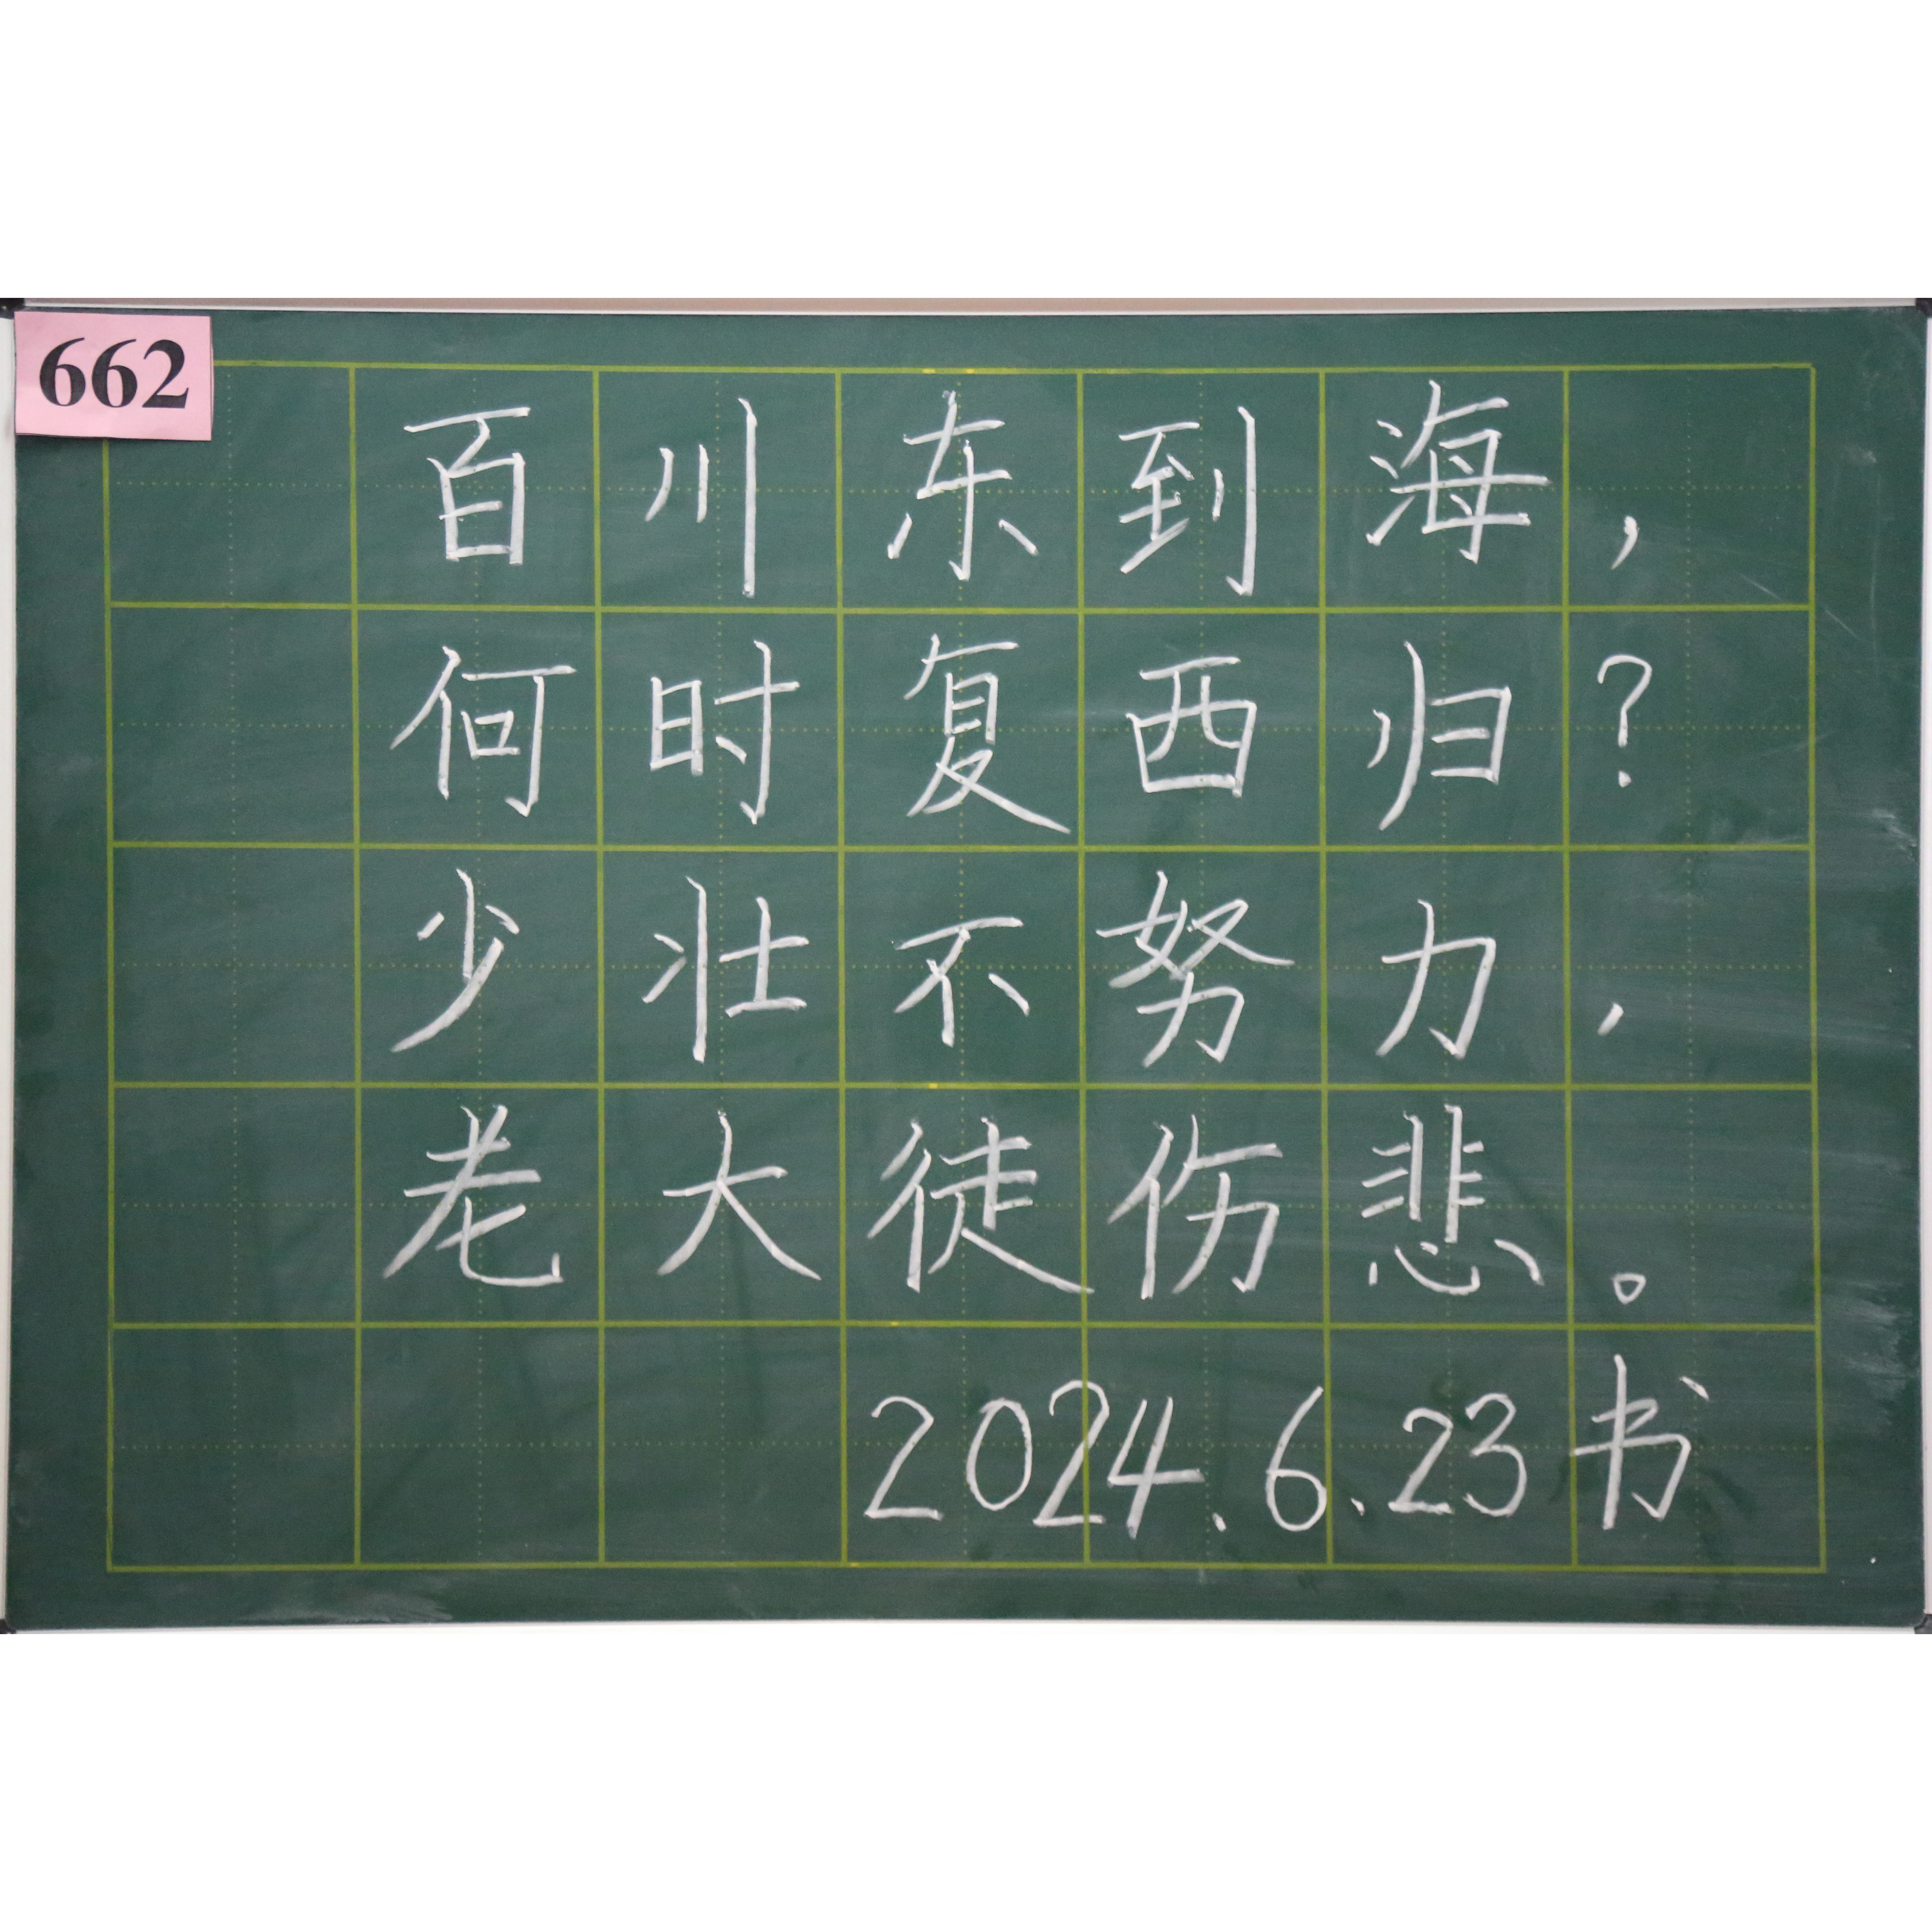 662
百川东到海，
何时复西归？
少壮不努力，
老大徒伤悲。
2024.6.23书